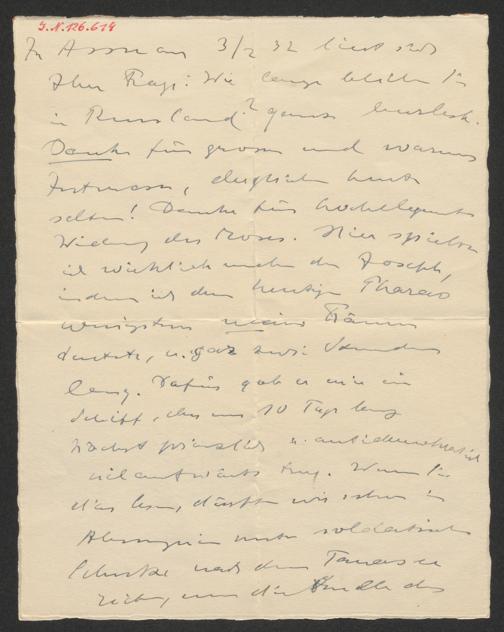 J.N. 126.619
In Assuan 3/2 32 liest sich
Ihre Frage: Wie lange bleiben Sie
in Russland? ganz burlesk.
Danke für grosses und warmes
Interesse, dergleichen heute
selten! Danke für hochelegante
Widmung des Moses. Hier spielte
ich wirklich mehr den Joseph,
indem ich dem heutigen Pharao
wenigstens meine Träume
deutete, u. zwar zwei Stunden
lang. Dafür gab er mir ein
Schiff, das uns 10 Tage lang
höchst fürstlich u. antidemokratisch
nilaufwärts trug. Wenn Sie
dies lesen, dürften wir schon in
Abessynien unter soldatischem
Schutze nach dem Tanasee
reiten, um die Quelle des